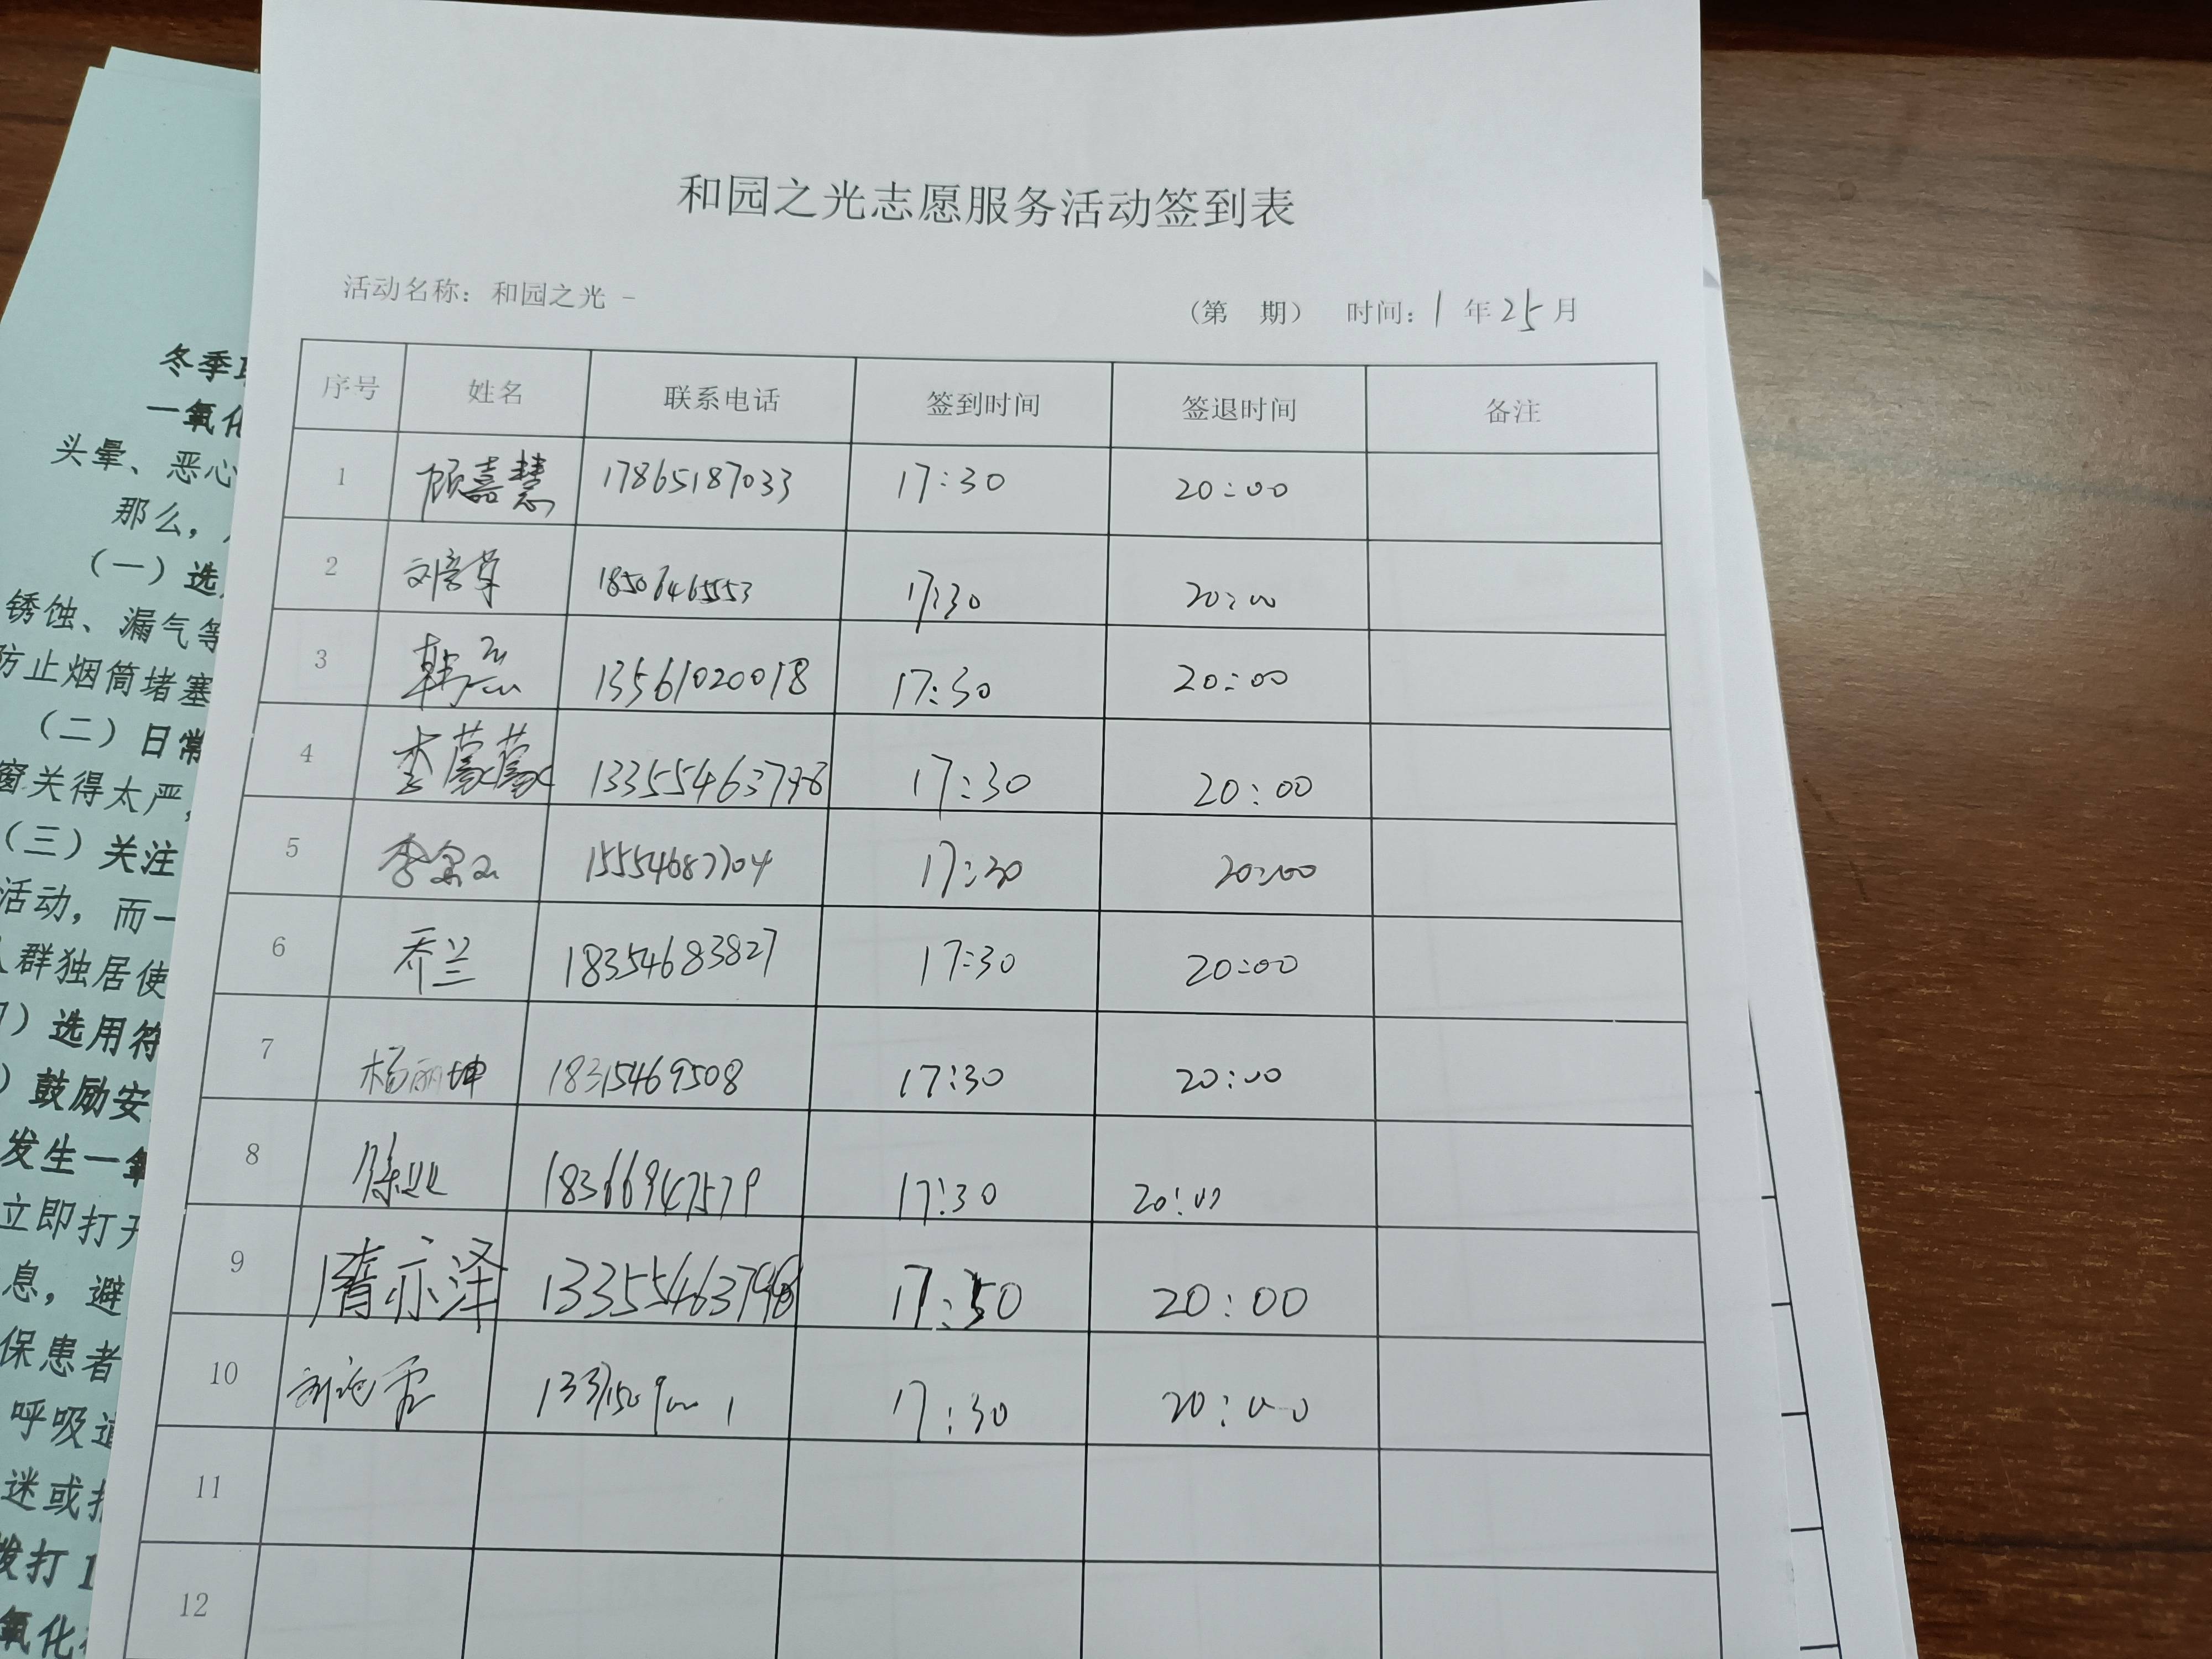 和园之光志愿服务活动签到表
活动名称：和园之光 -
（第 期） 时间：1 年 25 月
序号 姓名 联系电话 签到时间 签退时间 备注
1 顾嘉慧 17865187033 17:30 20:00
2 18506465553 17:30 20:00
3 13561020018 17:30 20:00
4 李蒙蒙 13355463798 17:30 20:00
5 15554687704 17:30 20:00
6 乔兰 18354683827 17:30 20:00
7 杨丽坤 18315469508 17:30 20:00
8 18366947579 17:30 20:00
9 隋亦泽 13355463798 17:30 20:00
10 17:30 20:00
11
12
冬季
一氧化
头晕、恶心
那么，
（一）选
锈蚀、漏气等
防止烟筒堵塞
（二）日常
窗关得太严，
（三）关注
活动，而一
人群独居使
）选用符
）鼓励安
发生一氧
立即打开
息，避
保患者
呼吸道
迷或
拨打 1
氧化